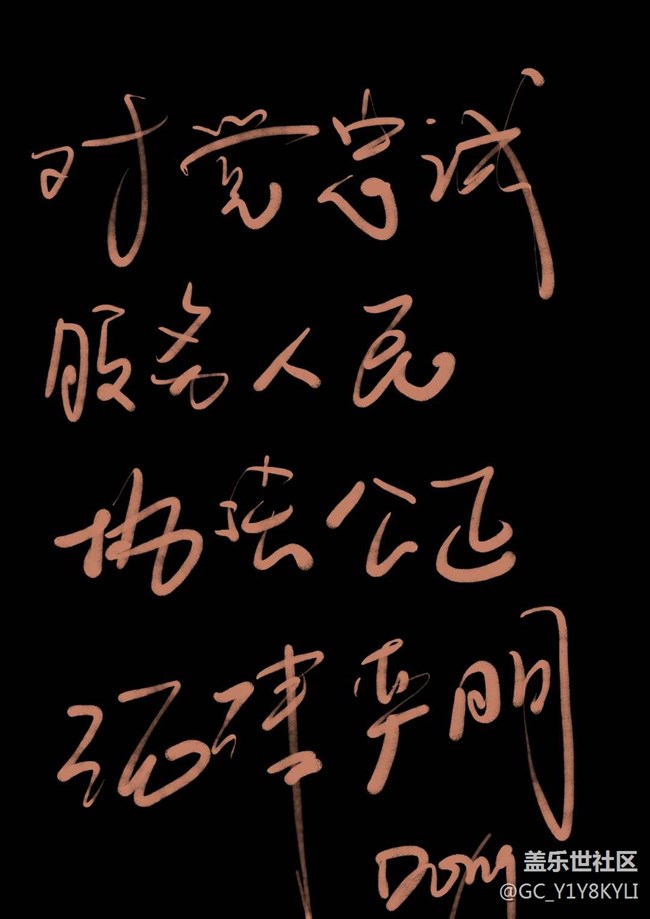 对党忠诚
服务人民
执法公正
纪律严明
Dong
盖乐世社区
@GC_Y1Y8KYLI